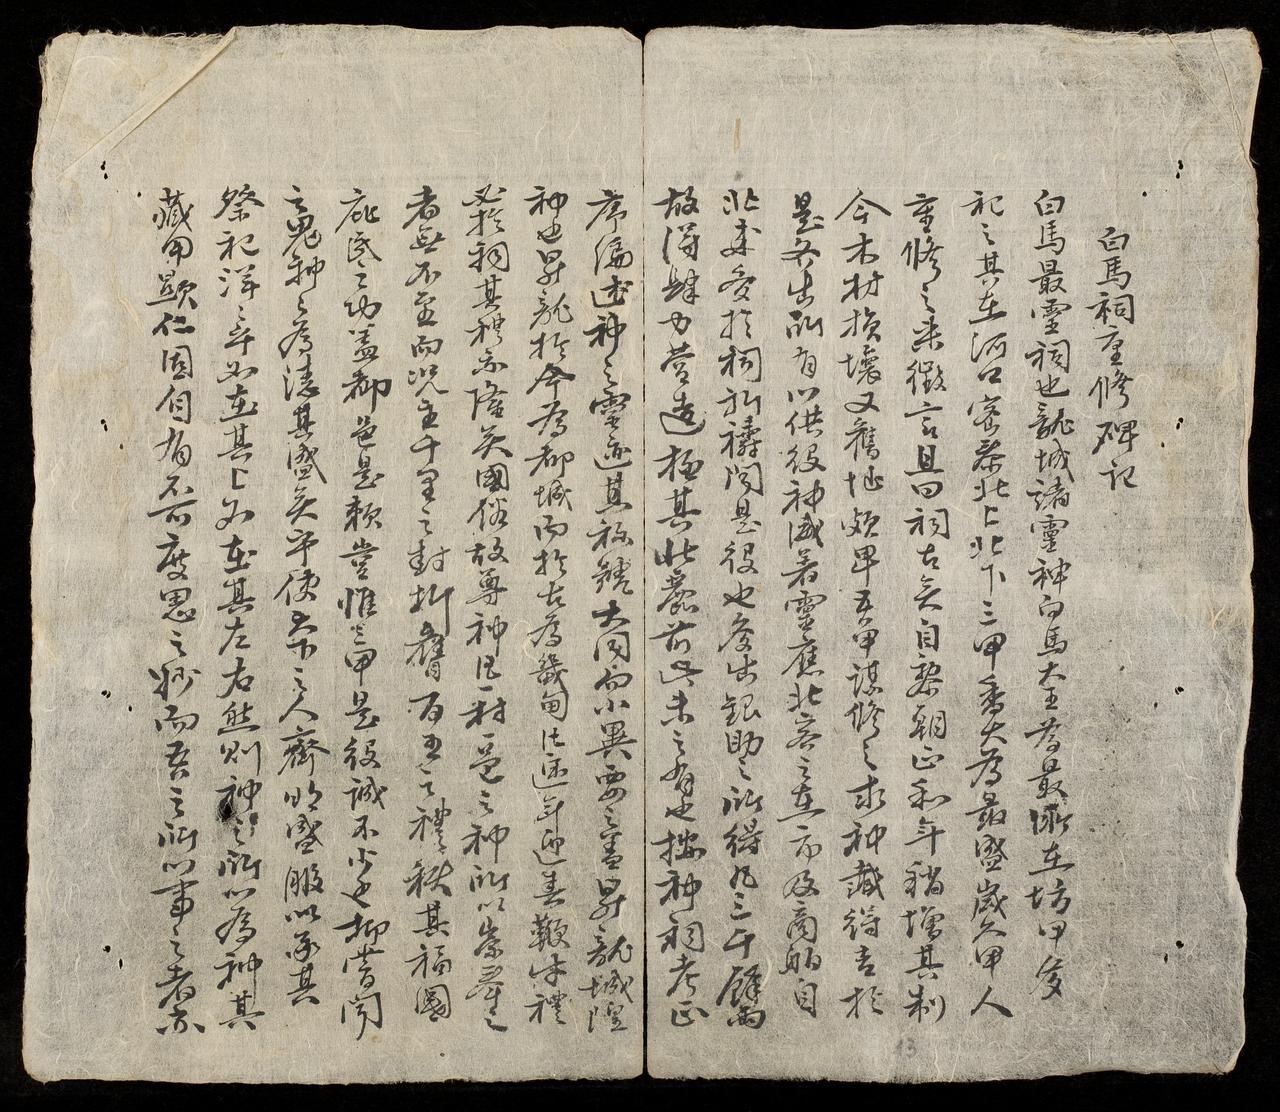 白馬祠重修碑記
白馬最靈祠也龍城諸靈神白馬大王為最所在坊甲多
祀之其在河口密泰北上北下三甲香火為最盛歲久甲人
重修之柴徵言且曰祠古矣自黎朝正和年稍增其制
今木材損壞又舊址頗卑吾甲謀修之求神籤得吉於
是各出所有以供役神威著靈應北客之在市及商舶自
北來多於祠祈禱聞是役也多出銀助之所得凡三千餘兩
故得肆力營造極其壯麗前此未之有也按神祠考正
序編述神之靈迹其祢號大同而小異要之盖昇龍城隍
神也昇龍於今為都城而於古為畿甸從逐年迎春鞭牛禮
必於祠其禮亦隆矣國俗故尊神凡一村一邑之神所以崇奉之
者無不至而況主千里之封折響百王之禮秩其福國
庇民之功盖都邑是賴豈惟三甲是役誠不少也抑嘗聞
之鬼神之為德其盛矣乎使天下之人齊明盛服以承其
祭祀洋洋乎如在其上如在其左右然則神之所以為神其
藏用顯仁固自有不可度思之妙而吾之所以事之者亦